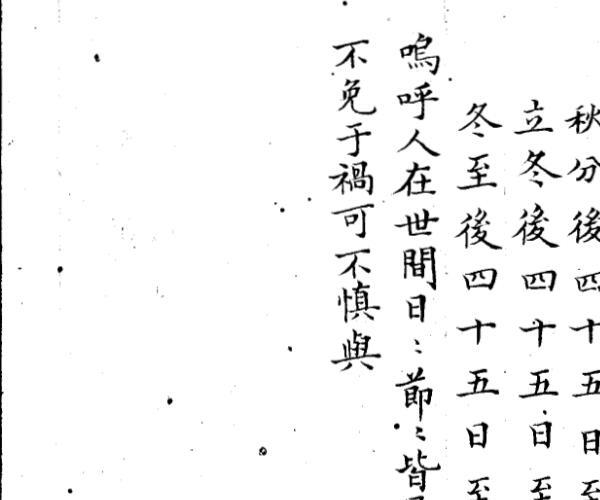 秋分後四十五日至
立冬後四十五日至
冬至後四十五日至
嗚呼人在世間日〻節〻皆
不免于禍可不慎與